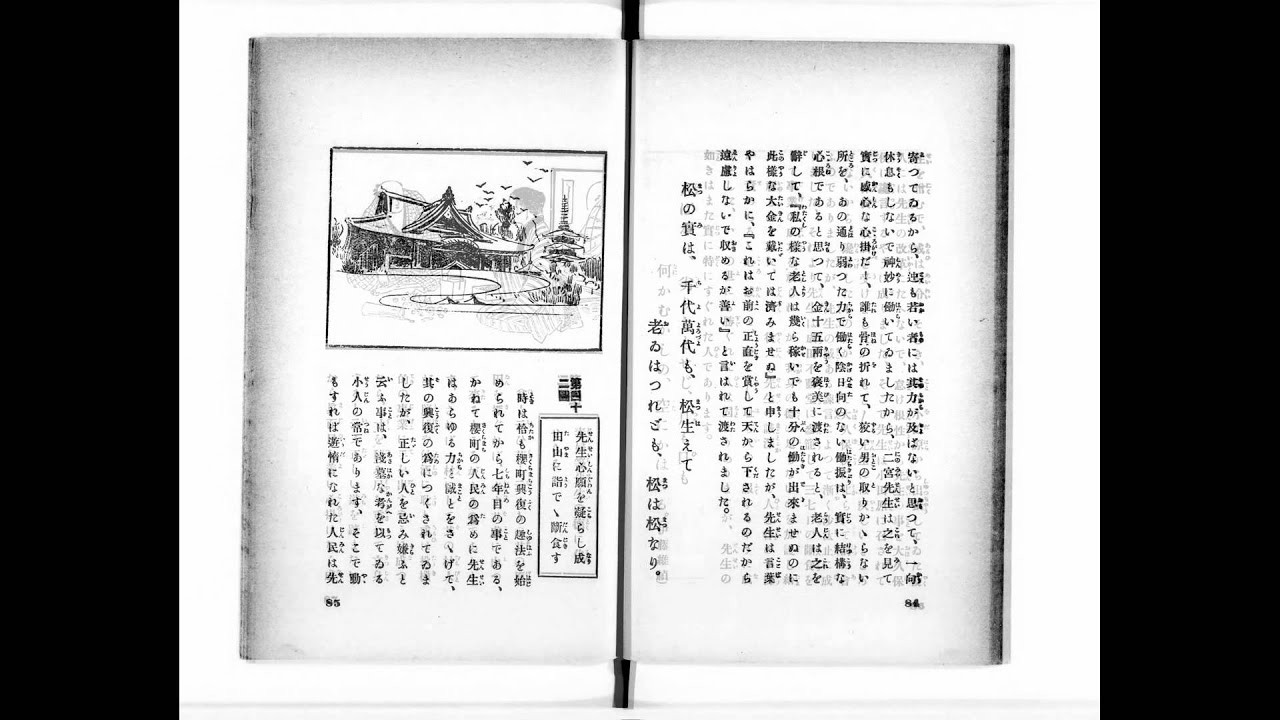 寄つてゐるから、迚も若い者には其力が及ばないと思つて、一向
休息もしないで神妙に働いてゐましたから、二宮先生は之を見て
實に感心な心掛だ、誰も骨の折れて、狡い男の取りかゝらない
所を、あの通り弱つた力で働く陰日向のない働振は、實に結構な
心根であると思つて、金十五兩を褒美に渡されると、老人は之を
辭して、『私の樣な老人は幾ら稼いでも十分の働が出來ませぬのに
此樣な大金を戴いては濟みませぬ』と申しましたが、先生は言葉
やはらかに、『これはお前の正直を賞して天から下されるのだから
遠慮しないで収めるが善い』と言はれて渡されました。
松の實は、千代萬代も、松生えて
老ゐはつれども、松は松なり。
84
第四十二圖
先生心願を凝らし成
田山に詣で、斷食す
時は恰も櫻町興復の趣法を始
められてから七年目の事である、
かねて櫻町の人民の爲めに先生
はあらゆる力と誠とをさゝげて、
其の興復の爲につくされてゐま
したが、正しい人を忌み嫌ふと
云ふ事は、淺墓な考を以てゐる
小人の常であります、そこで動
もすれば遊惰になれた人民は先
85